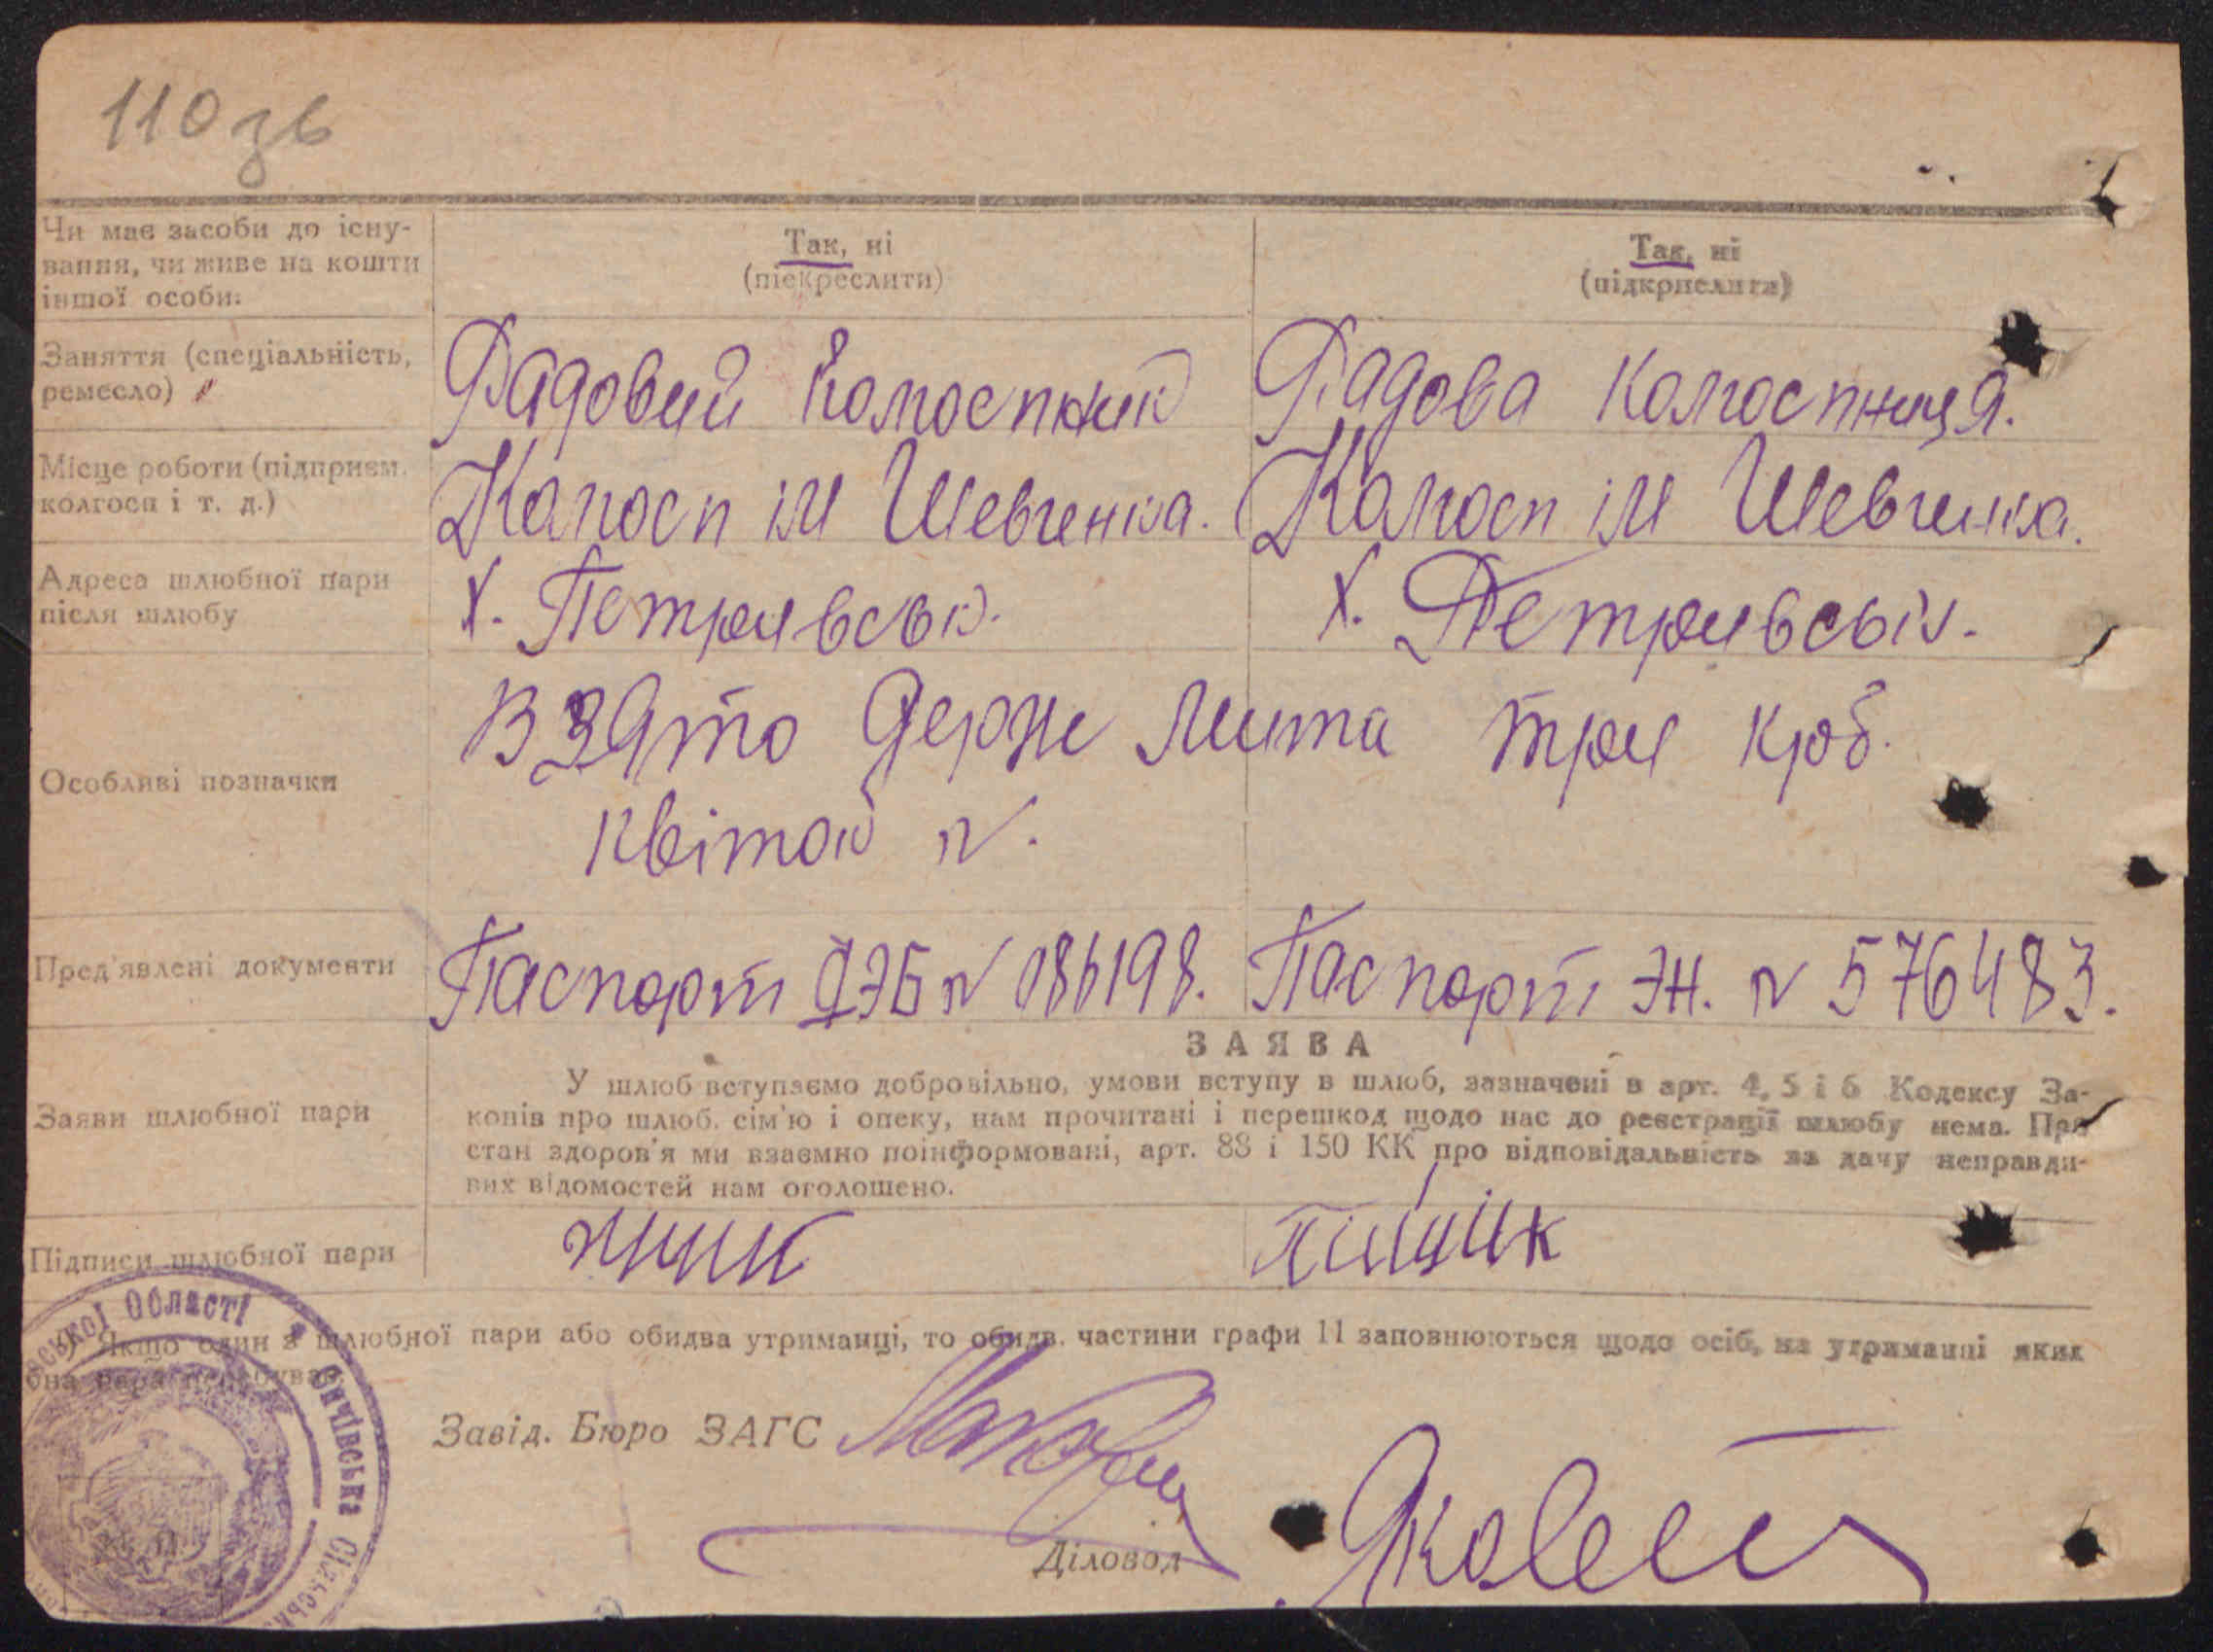 110 зв
Чи має засоби до існу-
вання, чи живе на кошти
іншої особи:
Так, ні
(піекреслити)
Так, ні
(підкрислити)
Заняття (спеціальність,
ремесло)
Рядовий колгоспник
Рядова колгоспниця.
Місце роботи (підприєм.
колгосп і т. д.)
Колгосп ім Шевченка.
Колгосп ім Шевченка.
Адреса шлюбної пари
після шлюбу
х. Петрывсык.
х. Петрывсык.
Особливі позначки
Взято держ мита три крб.
Квіток №.
Пред'явлені документи
Паспорт № 086198.
Паспорт ЭН. № 576483.
ЗАЯВА
Заяви шлюбної пари
У шлюб вступаємо добровільно, умови вступу в шлюб, зазначені в арт. 4, 5 і 6 Кодексу За-
конів про шлюб. сім'ю і опеку, нам прочитані і перешкод щодо нас до реєстрації шлюбу нема. Про
стан здоров'я ми взаємно поінформовані, арт. 88 і 150 КК про відповідальність за дачу неправди-
вих відомостей нам оголошено.
Підписи шлюбної пари
Якщо один з шлюбної пари або обидва утриманці, то обидв. частини графи 11 заповнюються щодо осіб, на утриманні яких
бна пара перебуває
ської Області
Сільська
Завід. Бюро ЗАГС
Діловод